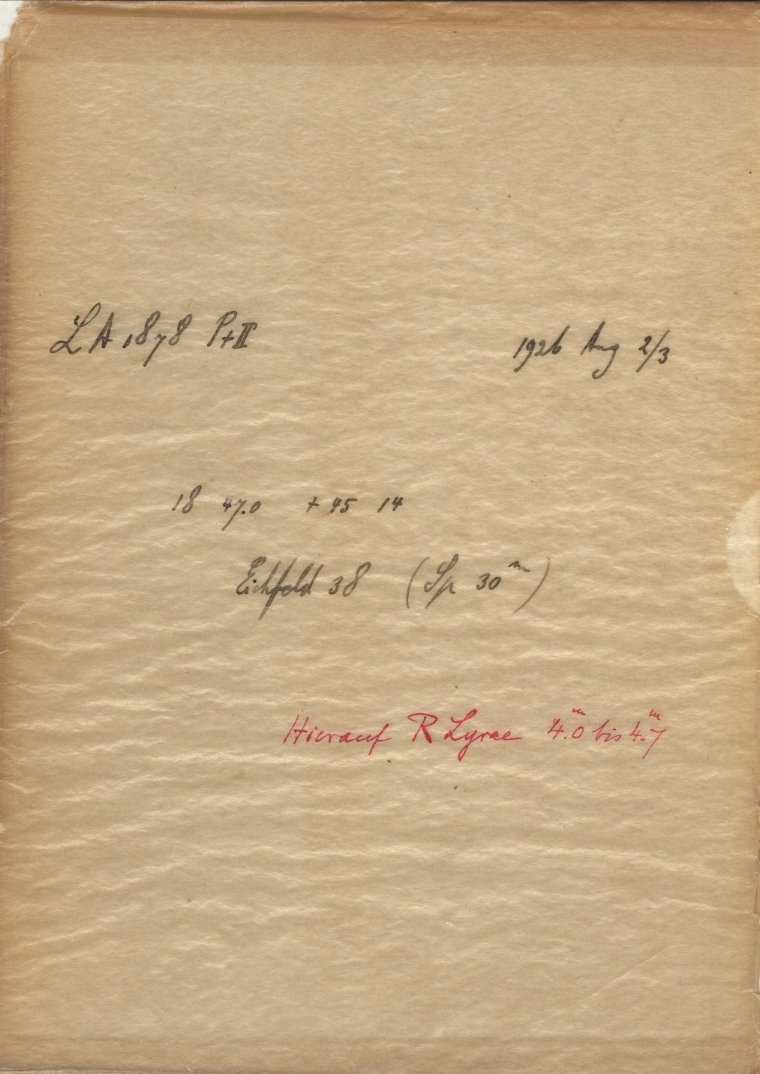 LA 1878 P+II 1926 Aug 2/3
18 47.0 +45 14
Eichfeld 38 (Sp 30ᵐ)
Hierauf R Lyrae 4ᵐ.0 bis 4ᵐ.7